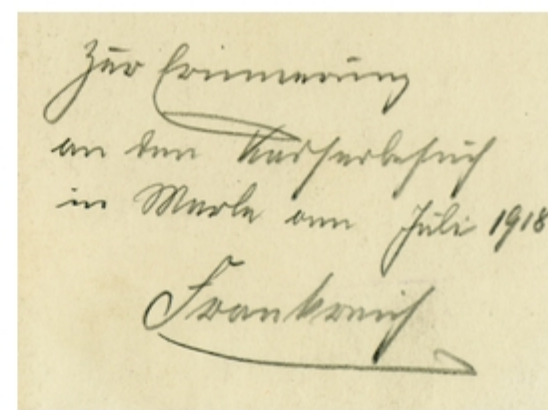 Zur Erinnerung
an den Kaiserbesuch
in Marle am Juli 1918
Frankreich